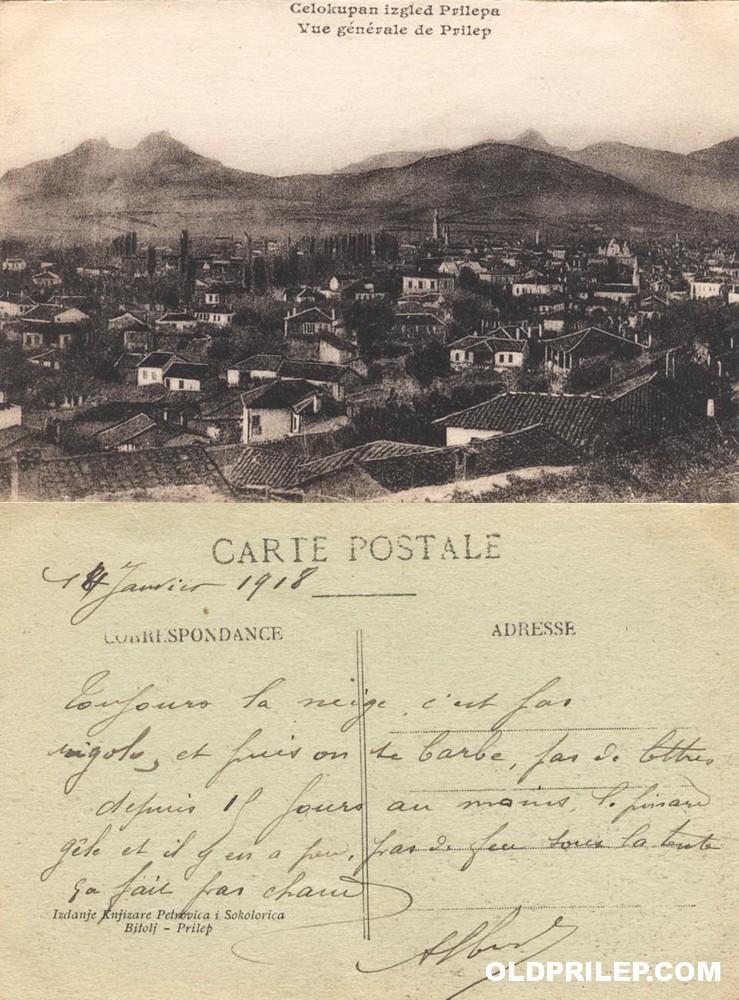 Celokupan izgled Prilepa
Vue générale de Prilep
CARTE POSTALE
14 Janvier 1918
CORRESPONDANCE
ADRESSE
Toujours la neige, c'est pas
rigolo, et puis on se barbe, pas de lettres
depuis 15 jours au moins, le pinard
gèle et il y en a peu, pas de feu sous la tente
ça fait pas chaud
Izdanje Knjizare Petrovica i Sokolorica
Bitolj - Prilep
Albert
OLDPRILEP.COM